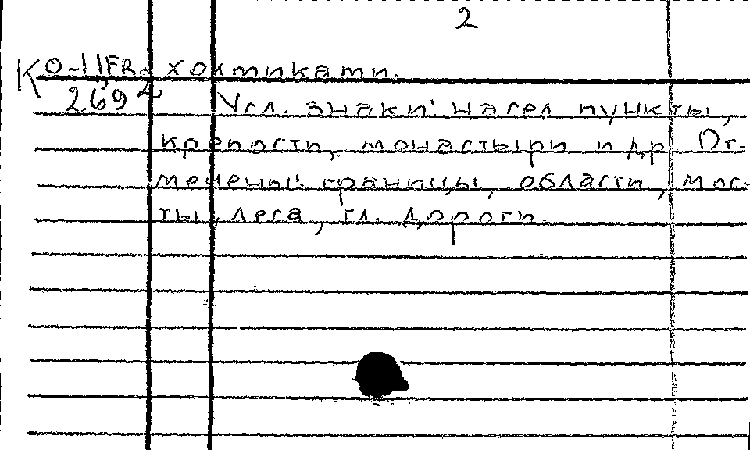 2
Ко-IIFR- холмиками.
269 2 Усл. знаки: насел пункты,
крепости, монастыри и др От-
мечены: границы, области, мос-
ты, леса, гл. дороги.